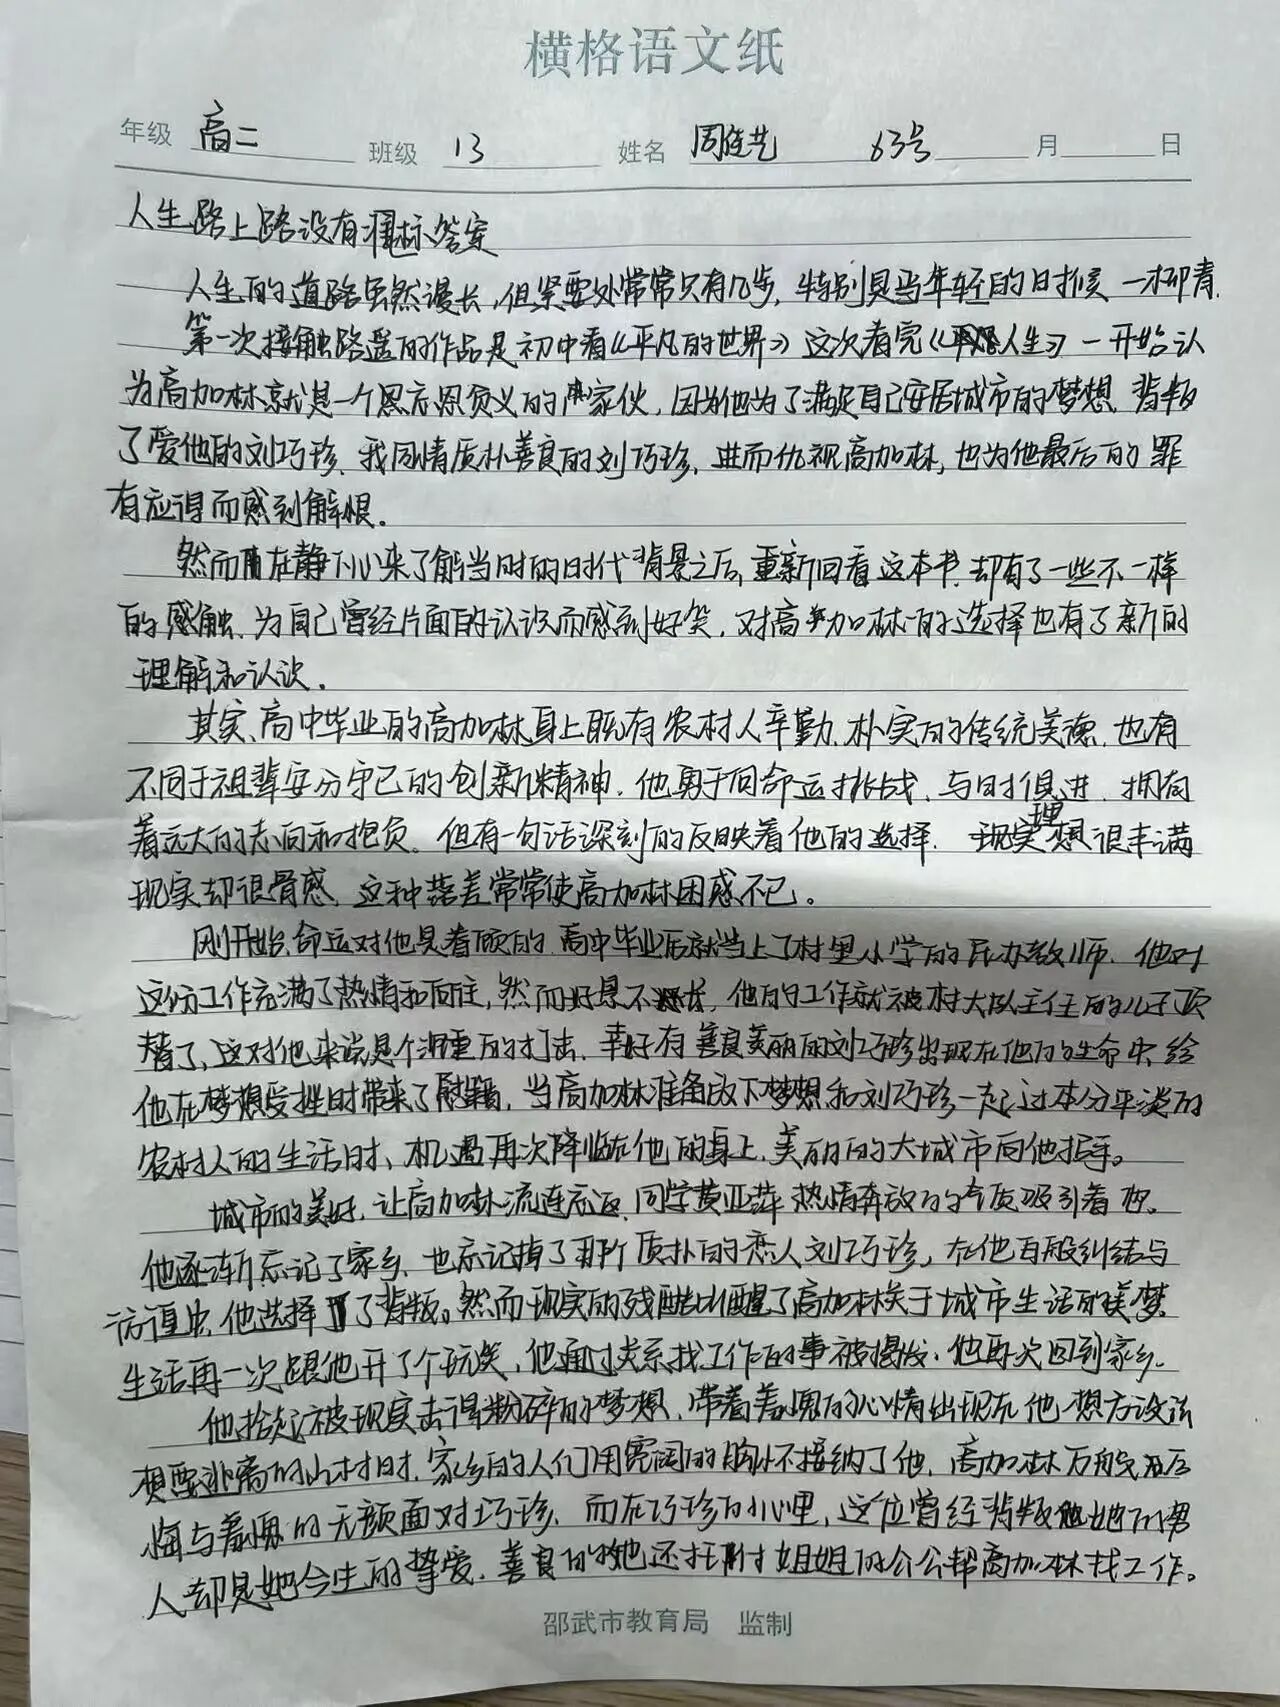 横格语文纸
年级 高二 班级 13 姓名 周佳艺 63号 月 日
人生路上路没有标答案
人生的道路虽然漫长,但紧要处常常只有几步,特别是当年轻的时候 —柳青.
第一次接触路遥的作品是初中看《平凡的世界》这次看完《人生》一开始认
为高加林就是一个忘恩负义的家伙,因为他为了满足自己安居城市的梦想,背叛
了爱他的刘巧珍.我同情质朴善良的刘巧珍,进而仇视高加林,也为他最后的罪
有应得而感到解恨.
然而在静下心来了解当时的时代背景之后,重新回看这本书,却有了一些不一样
的感触、为自己曾经片面的认识而感到好笑,对高加林的选择也有了新的
理解和认识.
其实、高中毕业的高加林身上既有农村人辛勤、朴实的传统美德,也有
不同于祖辈安分守己的创新精神.他勇于向命运挑战、与时俱进,拥有
着远大的志向和抱负.但有一句话深刻的反映着他的选择.理想很丰满
现实却很骨感,这种落差常常使高加林困惑不已。
刚开始,命运对他是眷顾的,高中毕业后就当上了村里小学的民办教师.他对
这份工作充满了热情和向往,然而好景不长,他的工作就被村大队主任的儿子顶
替了,这对他来说是个沉重的打击,幸好有善良美丽的刘巧珍出现在他的生命中,给
他在梦想受挫时带来了慰藉,当高加林准备放下梦想和刘巧珍一起过本分平淡的
农村人的生活时、机遇再次降临在他的身上,美丽的大城市向他招手。
城市的美好,让高加林流连忘返,同学黄亚萍热情奔放的气质吸引着他。
他逐渐忘记了家乡、也忘记掉了那个质朴的恋人刘巧珍,在他百般纠结与
彷徨中,他选择了背叛。然而现实的残酷打醒了高加林关于城市生活的美梦.
生活再一次跟他开了个玩笑,他通过关系找工作的事被揭发,他再次回到家乡.
他拾起被现实击得粉碎的梦想,带着羞愧的心情出现在他想方设法
想要逃离的山村时,家乡的人们用宽阔的胸怀接纳了他,高加林万般后
悔与羞愧的无颜面对巧珍,而在巧珍的心里,这位曾经背叛她的男
人却是她今生的挚爱,善良的她还托附姐姐的公公帮高加林找工作。
邵武市教育局 监制